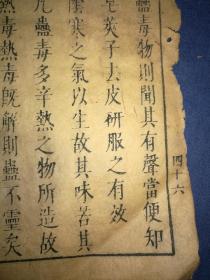 蠱毒物則聞其有聲當便知
皂莢子去皮研服之有效
寒之氣以生故其味苦其
凡蠱毒多辛熱之物所造故
熱毒熱毒旣解則蠱不靈矣
四十六